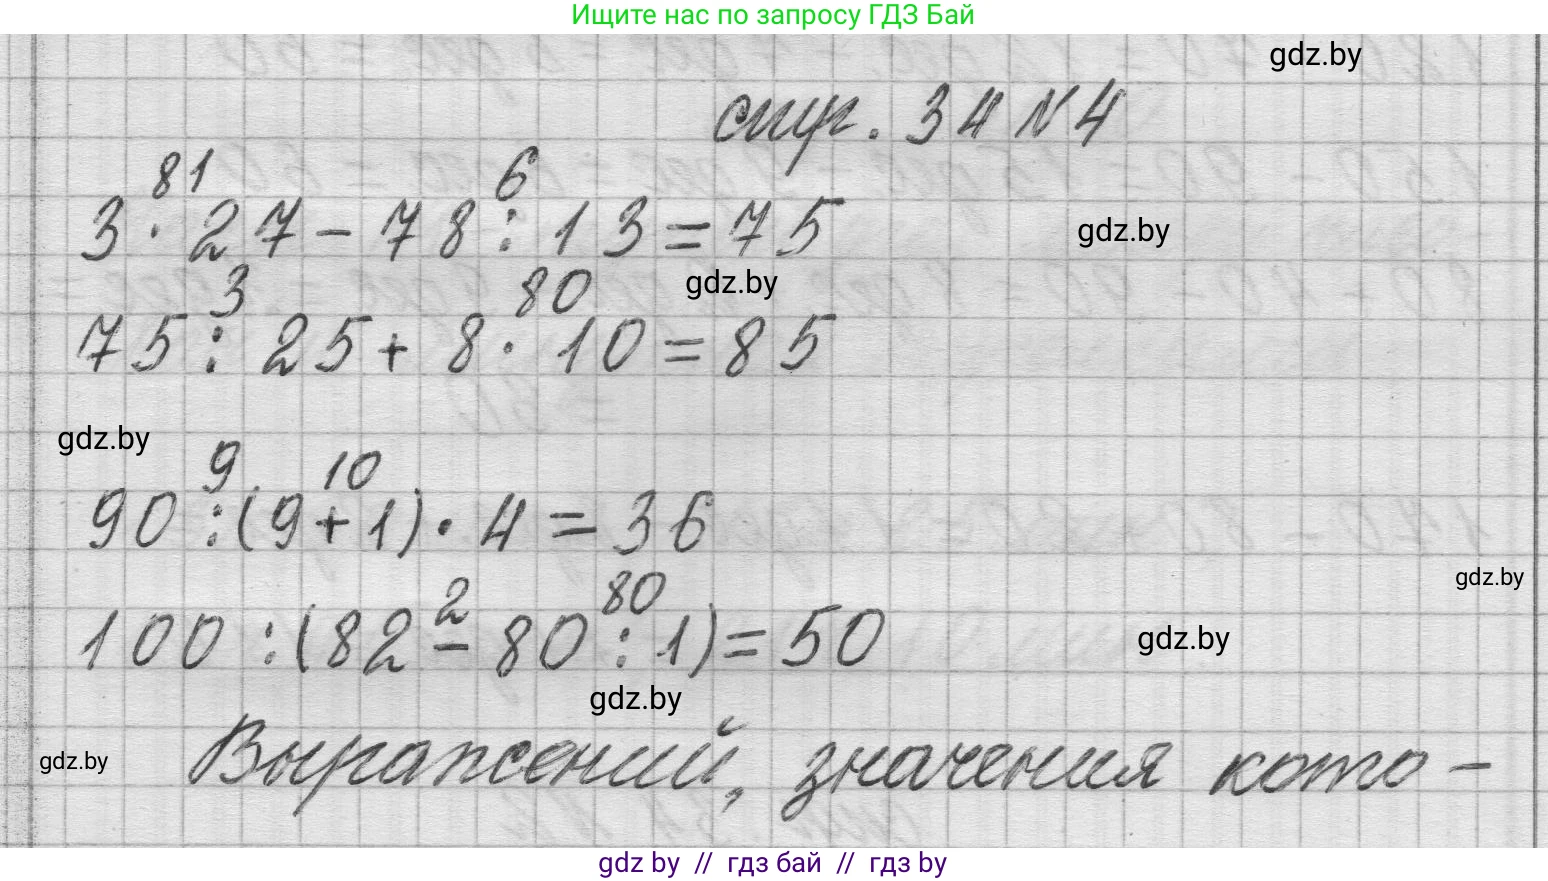 Ищите нас по запросу ГДЗ Бай
gdz.by
стр. 34 №4
81 6
3 · 27 - 78 : 13 = 75
gdz.by
3 80
gdz.by
75 : 25 + 8 · 10 = 85
gdz.by
9 10
90 : (9 + 1) · 4 = 36
gdz.by
2 80
100 : (82 - 80 : 1) = 50
gdz.by
gdz.by
Выражений, значения кото -
gdz.by
gdz by // гдз бай // гдз by